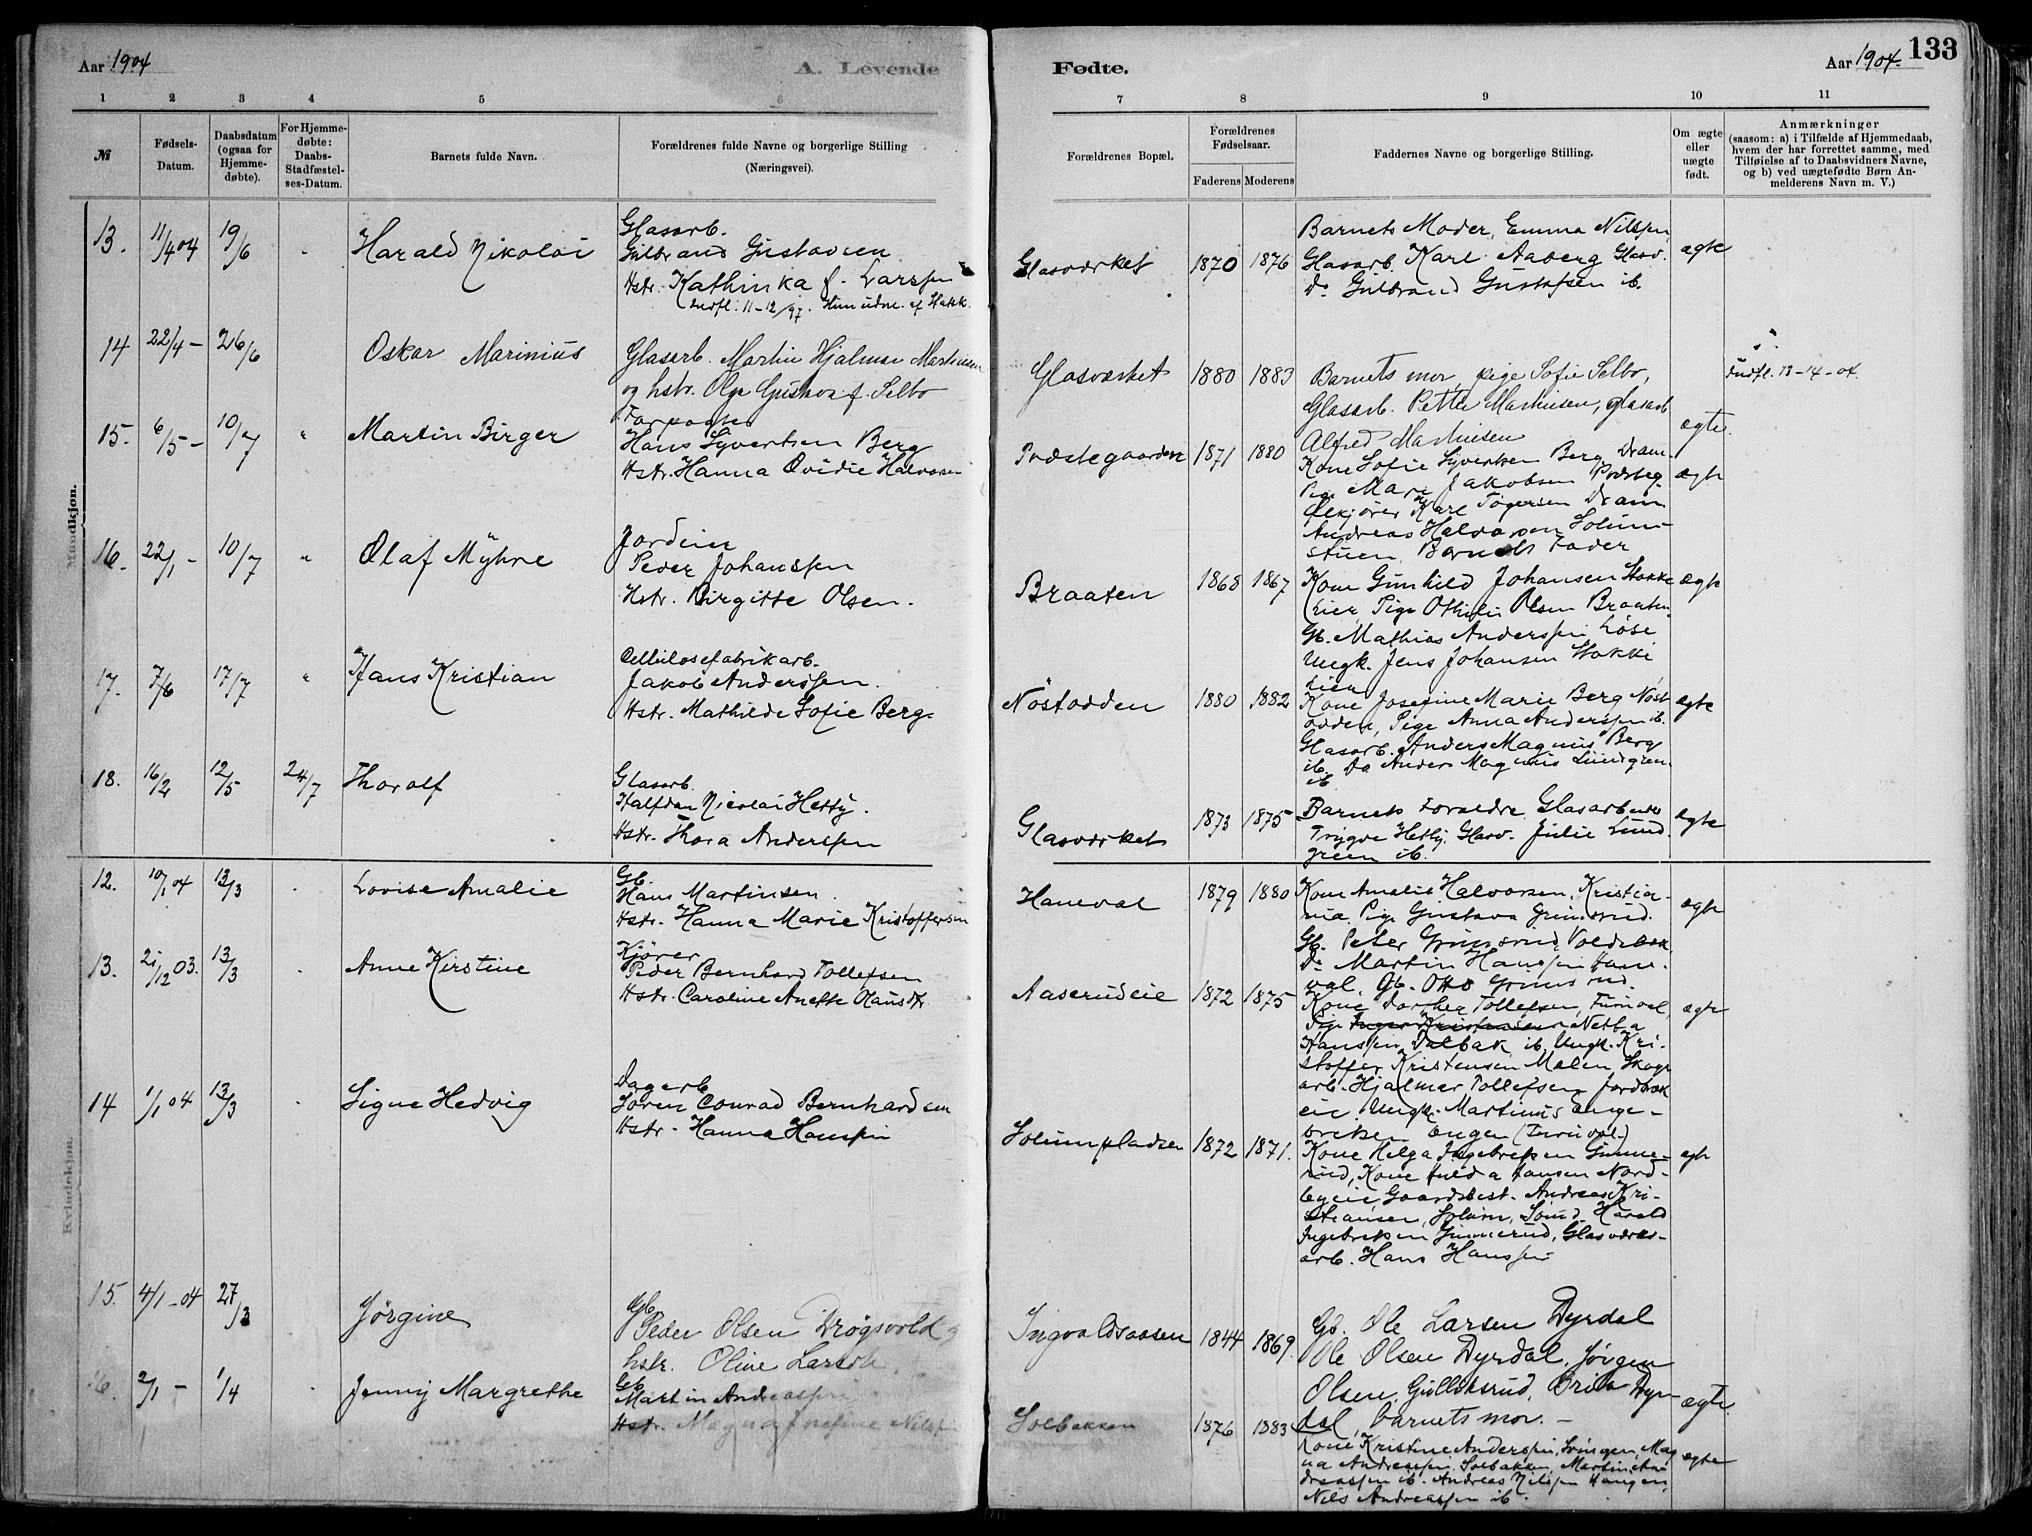 Aar 1904
A. Levende
Fødte.
Aar 1904.
133
1 2 3 4 5 6
7 8 9 10 11
№
Fødsels-
Datum.
Daabsdatum
(ogsaa for
Hjemme-
døbte).
For Hjemme-
døbte:
Daabs-
Stadfæstel-
ses-Datum.
Barnets fulde Navn.
Forældrenes fulde Navne og borgerlige Stilling
(Næringsvei).
Forældrenes Bopæl.
Forældrenes
Fødselsaar.
Faderens Moderens
Faddernes Navne og borgerlige Stilling.
Om ægte
eller
uægte
født.
Anmærkninger
(saasom: a) i Tilfælde af Hjemmedaab,
hvem der har forrettet samme, med
Tilføielse af to Daabsvidners Navne,
og b) ved uægtefødte Børn An-
melderens Navn m. V.)
Mandkjøn.
13. 11/4 04 19/6 Harald Nikolai
Glasarb.
Gulbrand Gustavsen
Hstr. Kathinka f. Larssen
Indfl. 11-12/97. Hun udm. af Hakk.
Glasværket 1870 1876
Barnets Moder, Emma Nilssen
Glasarb. Karl Aaberg Glasv.
Do Gulbrand Gustafsen ib.
ægte
14 22/4 – 26/6 Oskar Marinius
Glasarb. Martin Hjalmar Martinsen
og hstr. Olga Gustava f. Selbo
Glasværket 1880 1883
Barnets mor, pige Sofie Selbo,
Glasarb. Petter Martinsen, glasarb
Alfred Martinsen
ægte.
Indfl. 13-14-04.
15. 6/5 – 10/7 " Martin Birger
Forpagter
Hans Syvertsen Berg
Hstr. Hanna Ovidie Halvorsen
Præstegaarden 1871 1880
Kone Sofie Syvertsen Berg Dram-
Pige Mari Jakobsen Præsteg.
Ølkjører Karl Togersen Dram
Andreas Halvorsen Solum-
stuen, Barnets Fader
ægte
16. 22/1 – 10/7 " Olaf Myhre
Jordeier
Peder Johanssen
Hstr. Birgitte Olsen.
Braaten 1868 1867
Kone Gunhild Johansen Stokke
Lier, Pige Othilie Olsen Braaten
Gb. Mathias Anderssen Løse
Ungk. Jens Johansen Stokke
Lier
ægte
17. 7/6 17/7 " Hans Kristian
Cellulosefabrikarb.
Jakob Anderssen.
Hstr. Mathilde Sofie Berg.
Nøstodden 1880 1882
Kone Josefine Marie Berg Nøst-
odden, Pige Anna Anderssen ib.
Glasarb. Anders Magnus Berg
ib. Do Anders Magnus Lundgren
ib
ægte
18. 16/2 12/5 24/7 Thoralf
Glasarb.
Halfdan Nicolai Hetty.
Hstr. Thora Anderssen
Glasværket 1873 1875
Barnets Forældre Glasarbeider
Trygve Hetty, Glasv. Julie Lund
green ib.
ægte
Kvindekjøn.
12. 10/1 04 13/3 Lovise Amalie
Gb.
Hans Martinsen.
Hstr. Hanna Marie Kristoffersen
Haneval 1879 1880
Kone Amalie Halvorsen, Kristia-
nia. Pige Gustava Grimsrud
Gb. Peter Grimsrud, Voldsbæk
Do Martin Hanssen Hane-
val, Gb. Otto Grimsrud.
ægte
13. 21/12 03. 13/3 Anne Kirstine
Kjører
Peder Bernhard Tollefsen
Hstr. Caroline Anette Olausdtr.
Aaserudeie 1872 1875
Kone Dorthea Tollefsen, Furuval,
Pige Inger Kristensen Netta
Hanssen Dalbak ib. Ungk. Kri-
stoffer Kristensen Malen, Skogs
arb. Hjalmar Tollefsen Jordbræk
eie, Ungk. Martinus Enge-
briksen Enger (Furuval.)
ægte
14 1/1 04 13/3 Signe Hedvig
Dagarb.
Søren Conrad Bernhardsen
Hstr. Hanna Hanssen
Solumpladsen 1872 1871.
Kone Helga Ingebrigtsen Gunne-
rud, Kone Hulda Hansen Nord-
byeie, Gaardsbest. Andreas Kri-
stiansen, Solum, Smed Harald
Ingebriksen Gunnerud, Glasværks-
arb. Hans Hanssen
ægte
15. 4/1 – 04 27/3 Jørgine
Gb.
Peder Olsen Drøgsvold og
hstr. Oline Larsdtr.
Ingvaldsaasen 1844 1869.
Gb. Ole Larsen Dyrdal
Ole Olsen Dyrdal, Jørgen
Olsen, Gulliksrud, Dyr-
dal, barnets mor. –
ægte.
16. 2/1 – 1/4 Jenny Margrethe
Gb.
Martin Andreassen
Hstr. Magna Josefine Nilssen
Solbakken 1876 1883
Kone Kristine Anderssen, Svingen, Mag
na Andreassen Solbakken, Martin An-
dreassen ib. Andreas Nilssen Haugen,
Nils Andreassen ib.
ægte